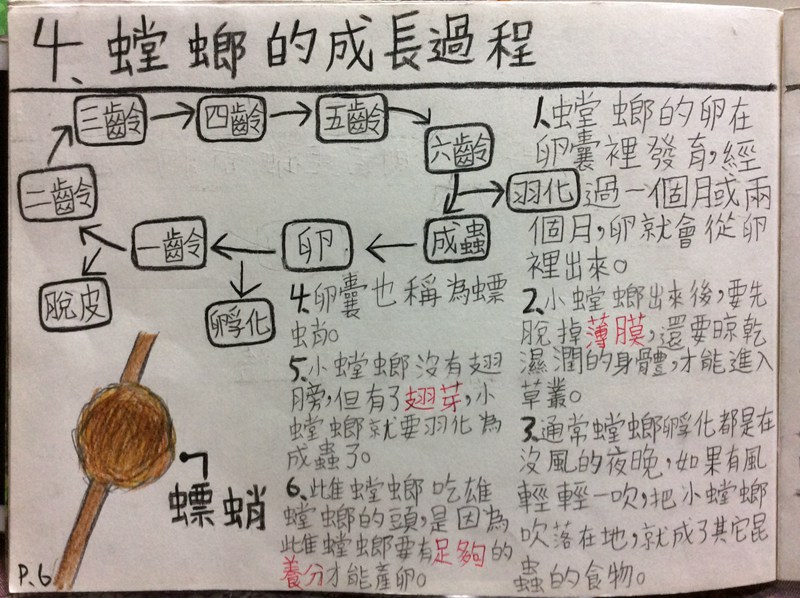 4、螳螂的成長過程
三齡
四齡
五齡
六齡
羽化
二齡
一齡
卵
成蟲
脫皮
孵化
1.螳螂的卵在
卵囊裡發育,經
過一個月或兩
個月,卵就會從卵
裡出來。
2.小螳螂出來後,要先
脫掉薄膜,還要晾乾
濕潤的身體,才能進入
草叢。
3.通常螳螂孵化都是在
沒風的夜晚,如果有風
輕輕一吹,把小螳螂
吹落在地,就成了其它昆
蟲的食物。
4.卵囊也稱為螵
蛸。
5.小螳螂沒有翅
膀,但有了翅芽,小
螳螂就要羽化為
成蟲了。
6.雌螳螂吃雄
螳螂的頭,是因為
雌螳螂要有足夠的
養分才能產卵。
螵蛸
P.6